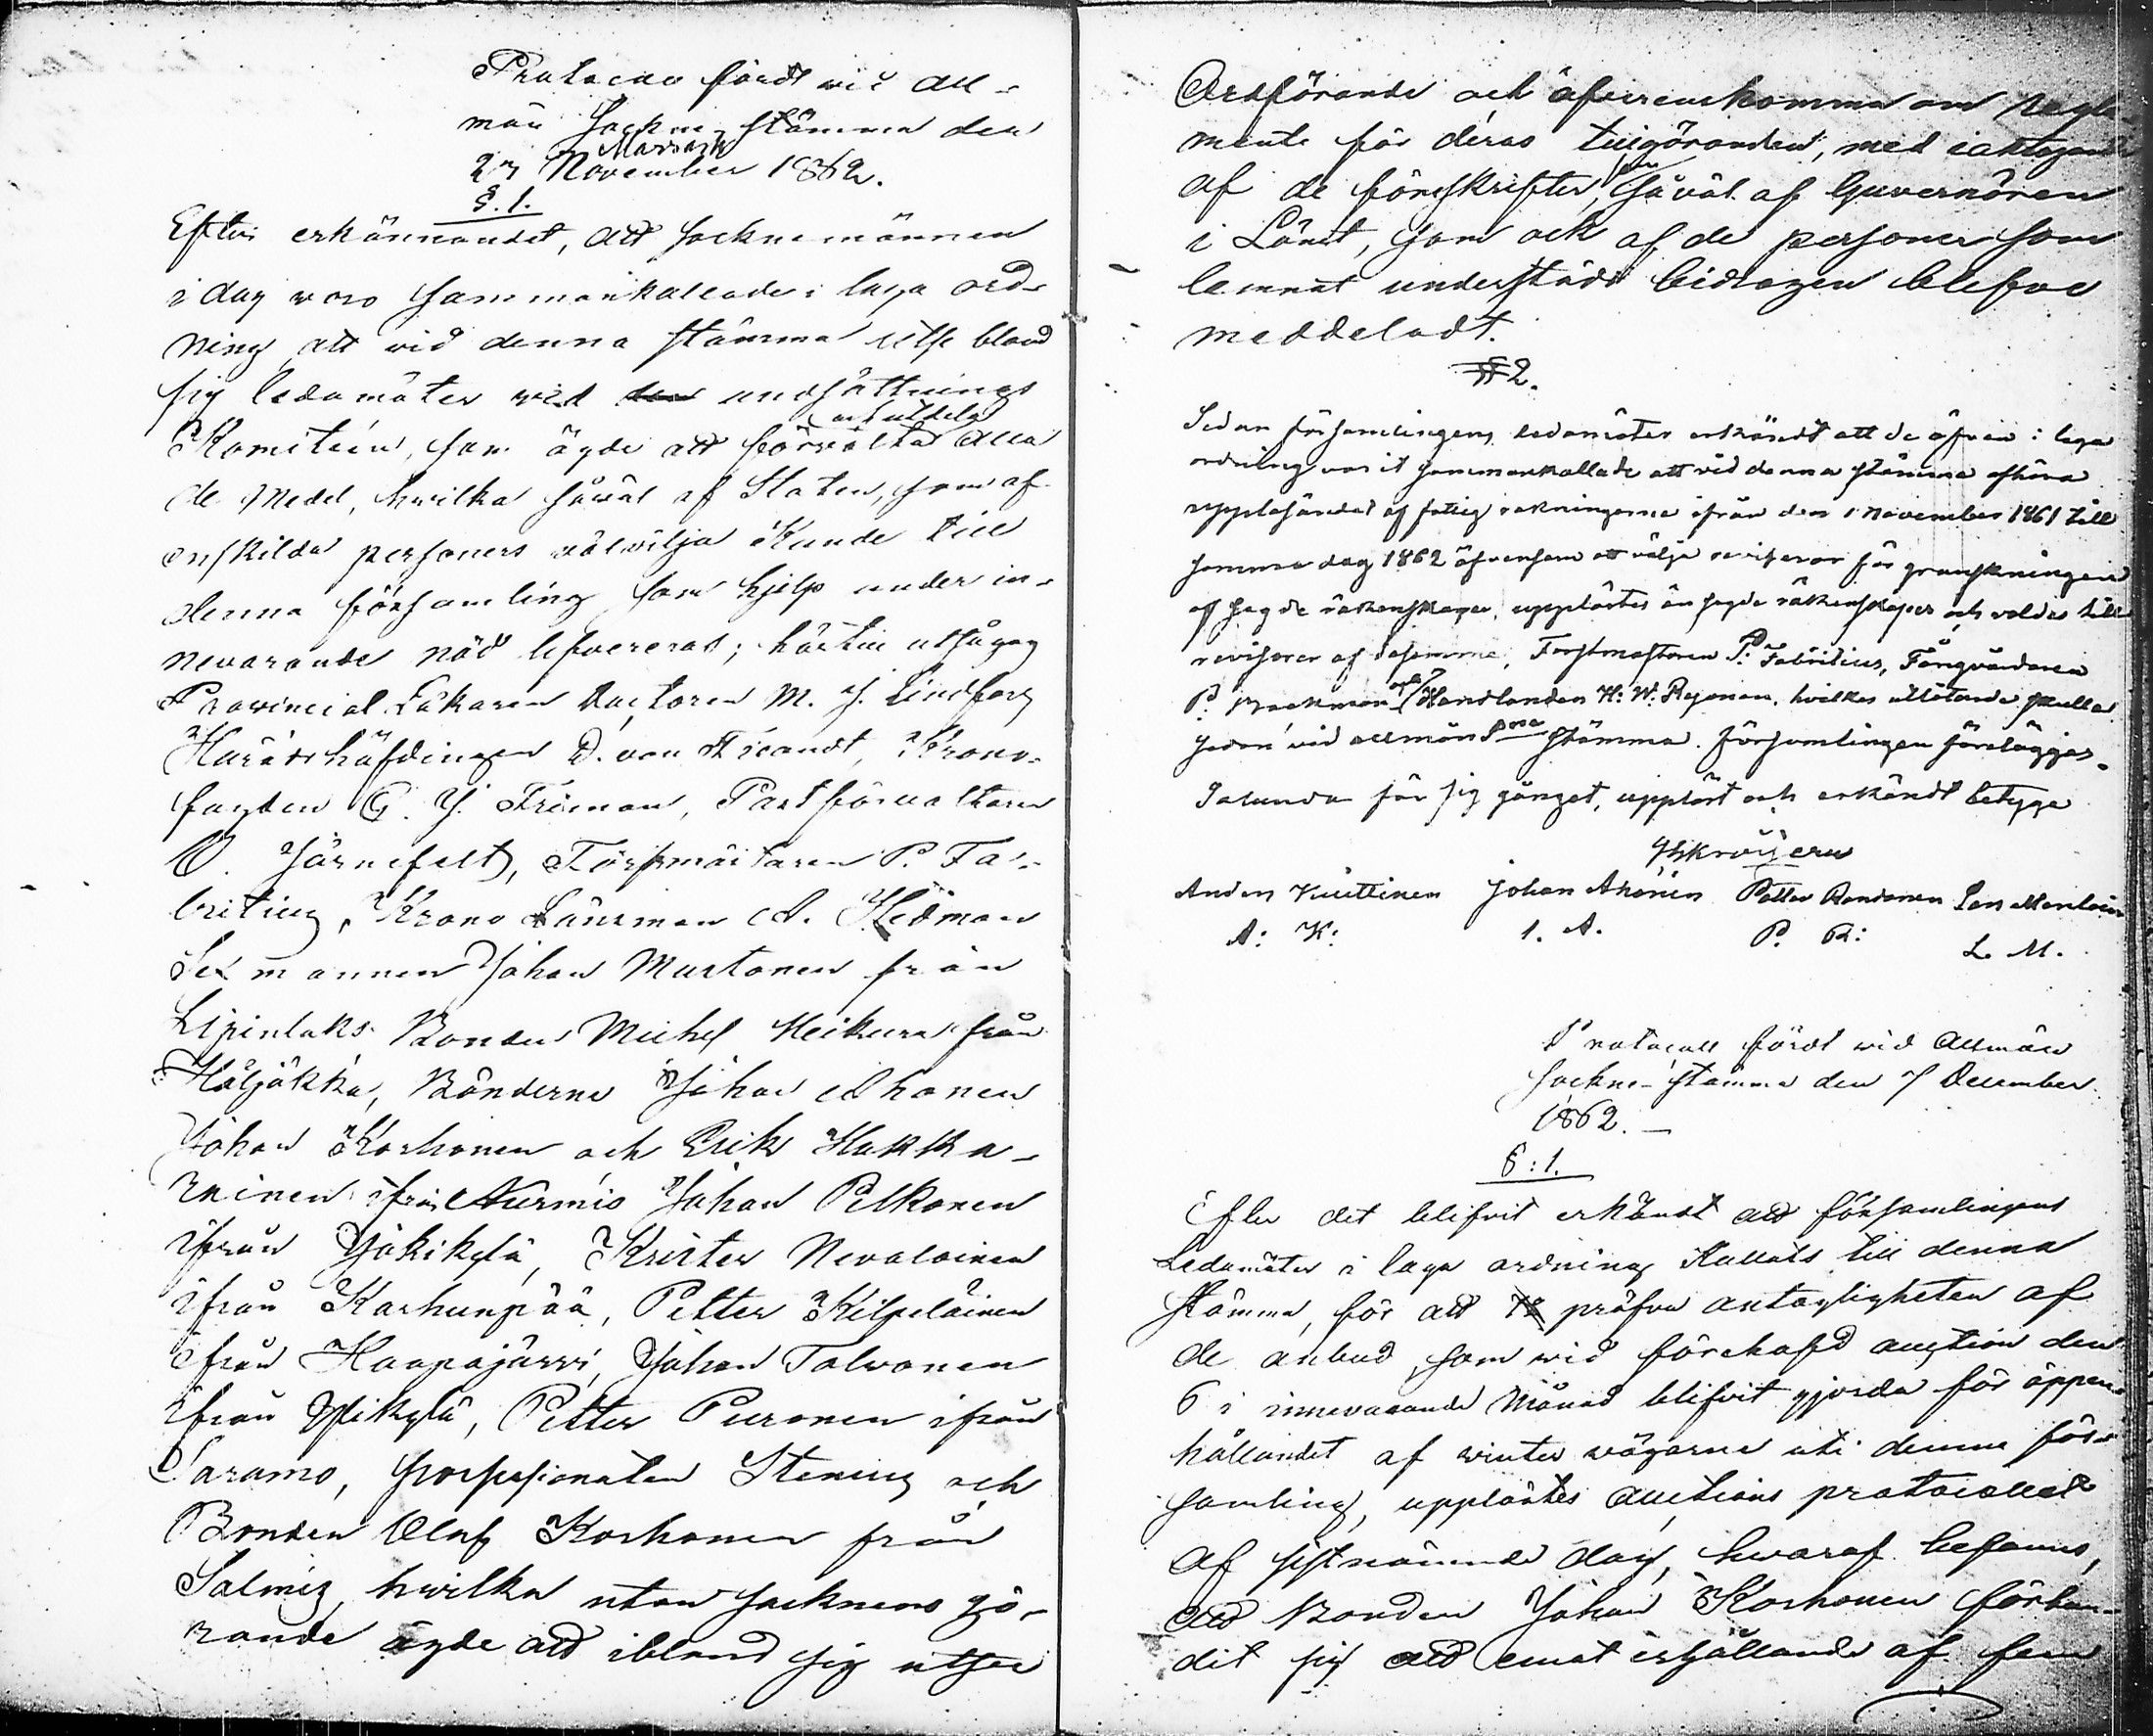 Protocoll fördt wid all-
män Sockne stämma den
23 November 1862.
§. 1.
Efter erkännandet, att Socknemännen
i dag voro sammankallade i laga ord-
ning att vid denna stämma utse bland
sig ledamöter vid den undsättnings
och utdela
Komiteen, som ägde att förvalta alla
de Medel, hwilka såväl af Staten, som af
enskilda personers välvilja kunde till
denna församling som hjelp under in-
nevarande nöd lefvereras; härtill utsågos
Provincial Läkaren Doctoren M. J. Lindfors
Häradshöfdingen D. von Fieandt, Krono-
fogden G. J. Friman, Postförvaltaren
O. Järnefelt, Forstmästaren P. Fa-
britius, Krono Länsman A. Hedman
Sexmannen Johan Martonen från
Lipinlaks Bonden Michel Meikura från
Höljäkkä, Bönderna Johan Ahonen
Johan Korhonen och Erik Hakka-
rainen ifrån Nurmis Johan Pelkonen
ifrån Jokikylä, Krister Nevalainen
ifrån Karhunpää, Petter Kilpeläinen
ifrån Haapajärvi, Johan Talvonen
ifrån Ylikylä, Petter Puronen ifrån
Saramo, Stenius och
Bonden Olof Korhonen från
Salmis, hwilka utan Socknens gö-
rande ägde att ibland sig utse
Ordförande och öfverenskomma om regle-
mente för deras tillgöranden, med iakttagande
af de föreskrifter, som såväl af Guvernören
i Länet, som ock af de personer som
lemnat understöds bidragen blefve
meddeladt.
§ 2.
Sedan församlingens ledamöter erkändt att de äfven i laga
ordning varit sammankallade att vid denna stämma afhöra
uppläsandet af fattig räkningarne ifrån den 1 November 1861 till
samma dag 1862 äfvensom att välja revisorer för granskningen
af sagde räkenskaper, upplästes än sagde räkenskaper och valdes till
revisorer af desamma, Forstmästaren P. Fabritius, Fångvårdaren
P. Backman och Handlanden H: W: Reponen, hvilkas utlåtande skulle
sedan vid allmän Sne stämma församlingen föreläggas.
Salunda för sig gånget, uppläst och erkändt betyga
Anders Kuittinen Johan Ahonen Petter Lars
A: K: I. A. P. R: L. M.
Protocoll fördt wid Allmän
Sockne-stämma den 7 December
1862.
§:1.
Efter det blifvit erkändt att församlingens
Ledamöter i laga ordning kallats till denna
stämma, för att pröfva antagligheten af
de anbud, som wid förehafd auction den
6 i innevarande Månad blifvit gjorda för öppen-
hållandet af winter vägarne uti denna för-
samling, upplästes auctions protocollet
af sistnämnde dag, hwaraf befanns,
att Bonden Johan Korhonen förbun-
dit sig att emot erhållande af fem